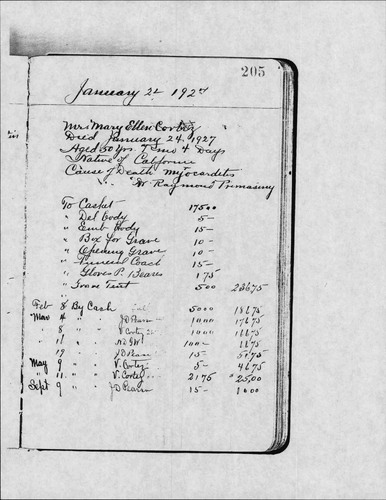 205
January 24 1927
Mrs Mary Ellen Cortez
Died January 24, 1927
Aged 50 Yrs. 7 mo 4 Days
Native of California
Cause of Death Myocarditis
" " Dr Raymond
To Casket 175 00
" Del body 5 -
" Emb body 15 -
" Box for Grave 10 -
" Opening Grave 10 -
" Funeral Coach 15 -
" Gloves P. Bearers 1 75
" Grave Tent 5 00 236 75
Feb 8 By Cash 50 00 186 75
Mar 4 " " J D 10 00 176 75
" 8 " " V Cortez 10 00
" 17 " " 100 -
" 19 " " J D 15 -
May 9 " " V. Cortez 5 - 46 75
" 11 " " V. Cortez 21 75 25 00
Sept 9 " " J D 15 - 10 00